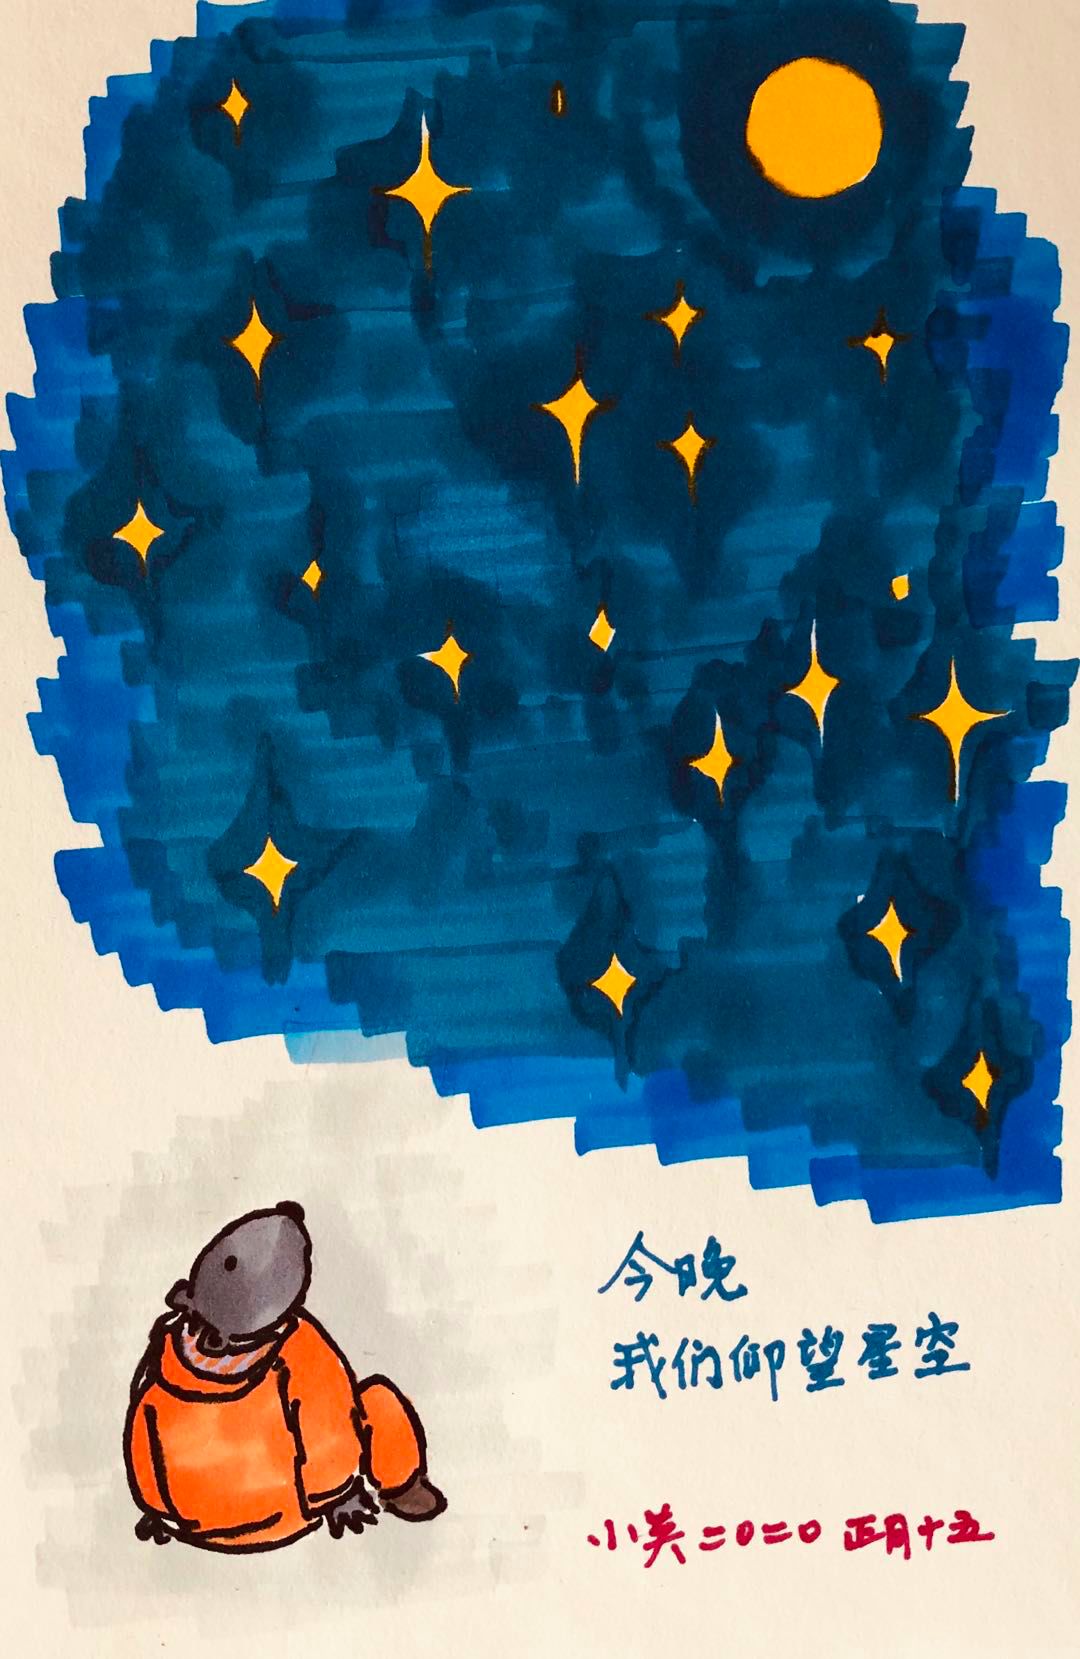 今晚
我们仰望星空
小英二〇二〇 正月十五